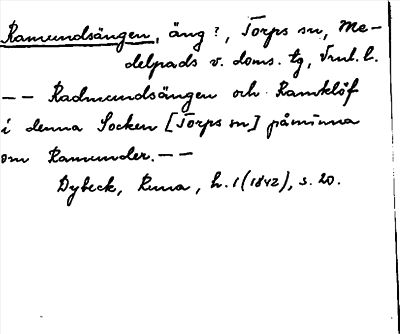 Ramundsängen, äng?, Torps sn, Me-
delpads v. doms. tg, Vnl. l.
-- Radmundsängen och Ramklöf
i denna Socken [Torps sn] påminna
om Ramunder. --
Dybeck, Runa, h. 1 (1842), s. 20.